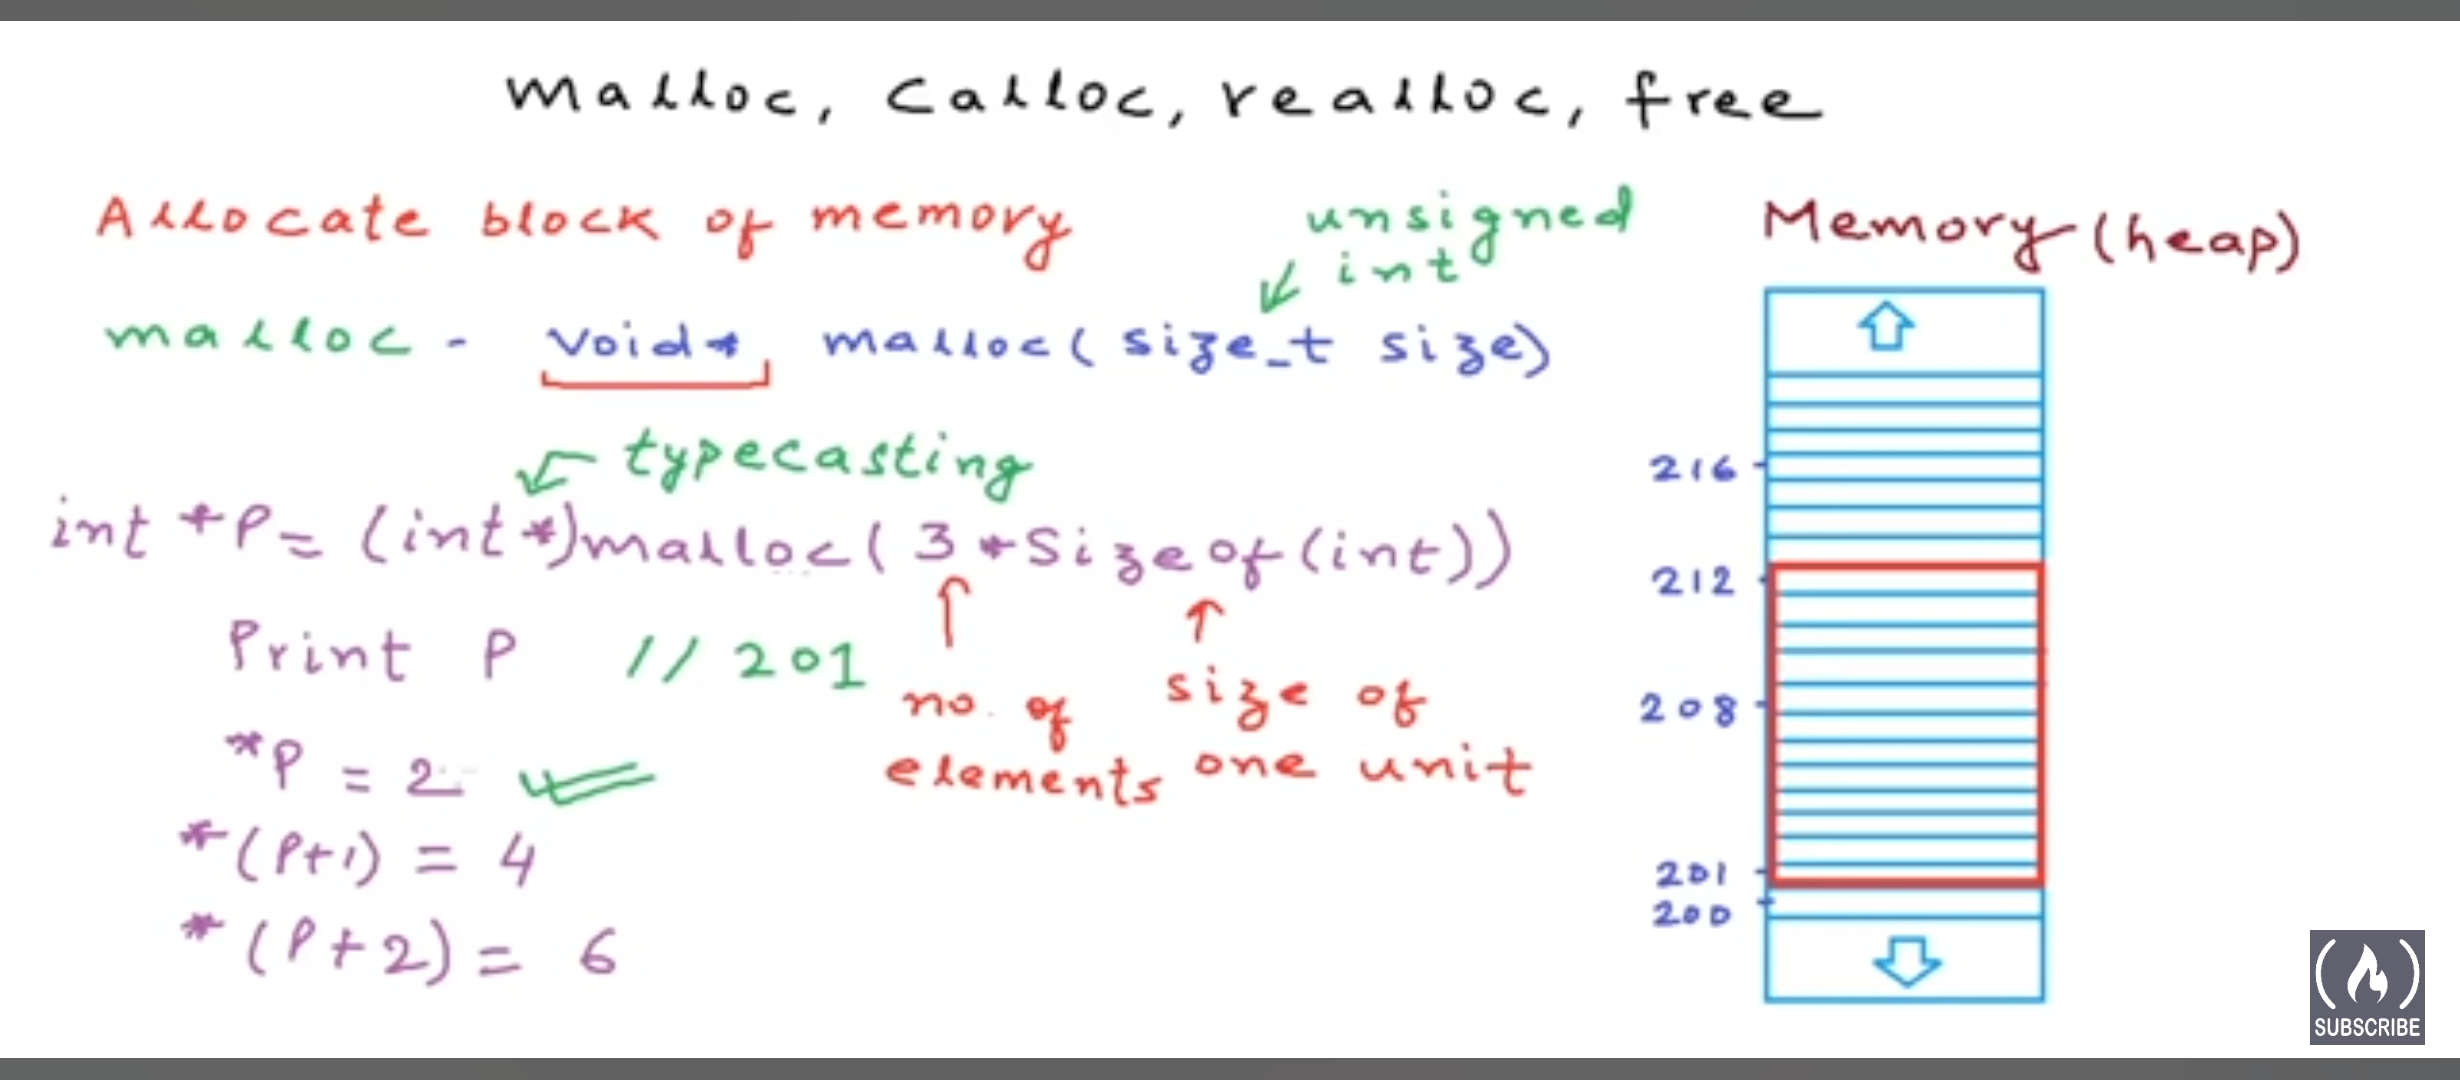 malloc, calloc, realloc, free
Allocate block of memory
unsigned
int
Memory (heap)
malloc - void* malloc(size_t size)
typecasting
int *P = (int*)malloc(3*sizeof(int))
Print P // 201
no. of
elements
size of
one unit
*P = 2
*(P+1) = 4
*(P+2) = 6
216
212
208
201
200
SUBSCRIBE